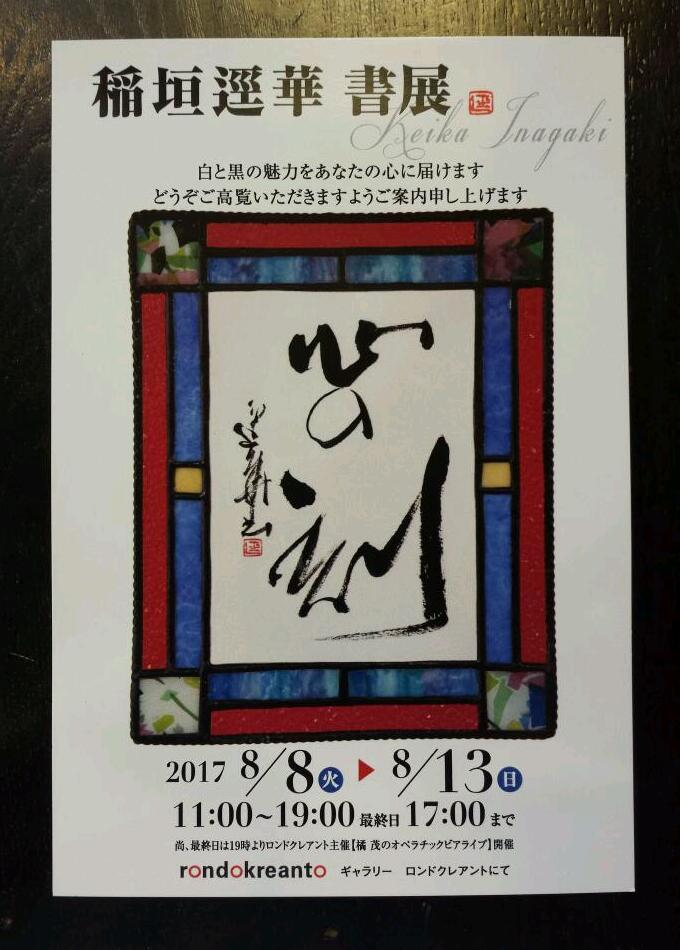 稲垣逕華 書展
Keika Inagaki
白と黒の魅力をあなたの心に届けます
どうぞご高覧いただきますようご案内申し上げます
心の刻
2017 8/8火 ▶ 8/13日
11:00~19:00 最終日 17:00 まで
尚、最終日は19時よりロンドクレアント主催【橘 茂のオペラチックビアライブ】開催
rondokreanto ギャラリー ロンドクレアントにて